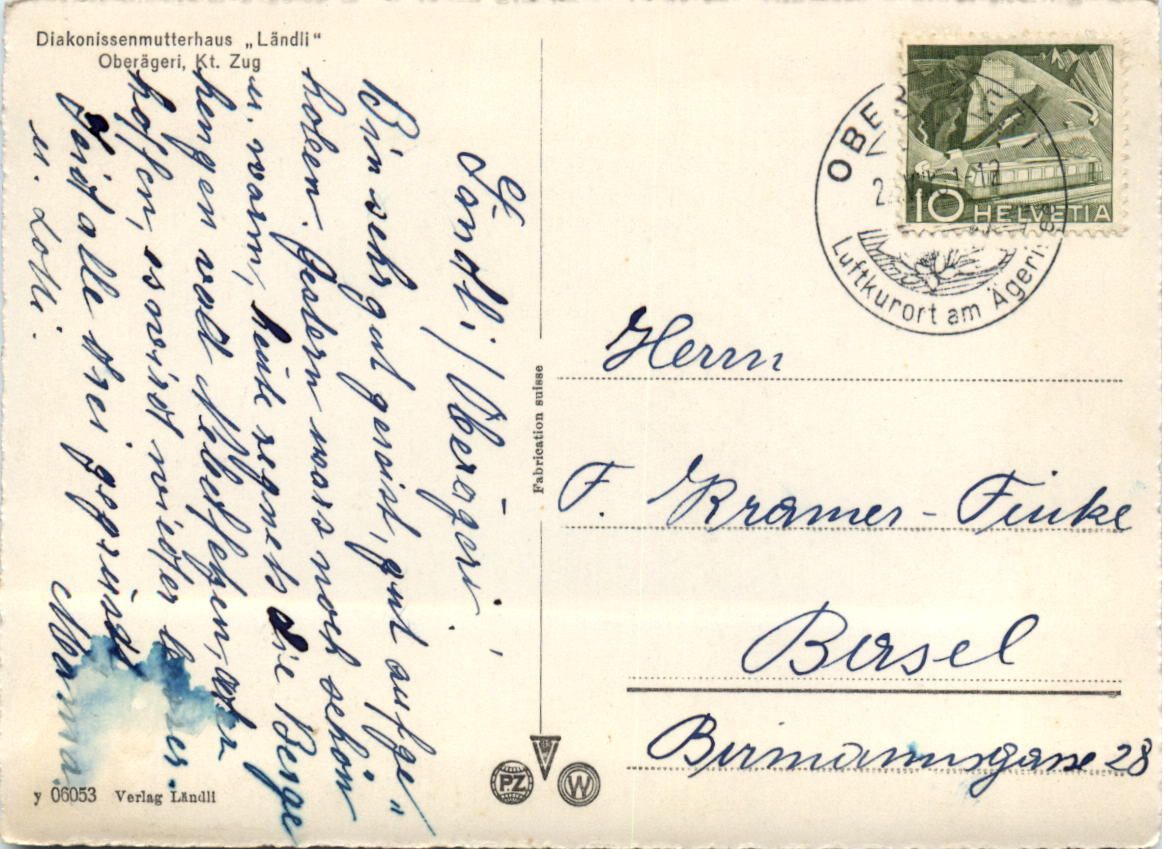 Diakonissenmutterhaus „Ländli"
Oberägeri, Kt. Zug
Ländli / Oberägeri,
Bin sehr gut gereist, gut aufge"
hoben. Gestern wars noch schön
u. warm, heute regnets die Berge
hengen voll Nebelfetzen, aber
hoffen, es wird wieder
Seid alle drei gegrüsst
Mama
u. Lotti.
y 06053 Verlag Ländli
Fabrication suisse
PZ
W
OBE
Luftkurort am Ägeri
10 HELVETIA
Herrn
F. Kramer-Finke
Basel
Birmannsgasse 28